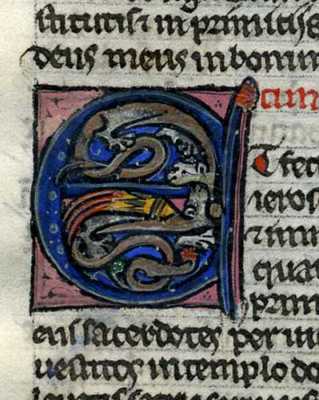 stitutis ⁊ in primitiis
deus meus in bonum
T fec
ieros
⁊ imm
quar
prim
ens sacerdotes per ui
uestitos in templo do